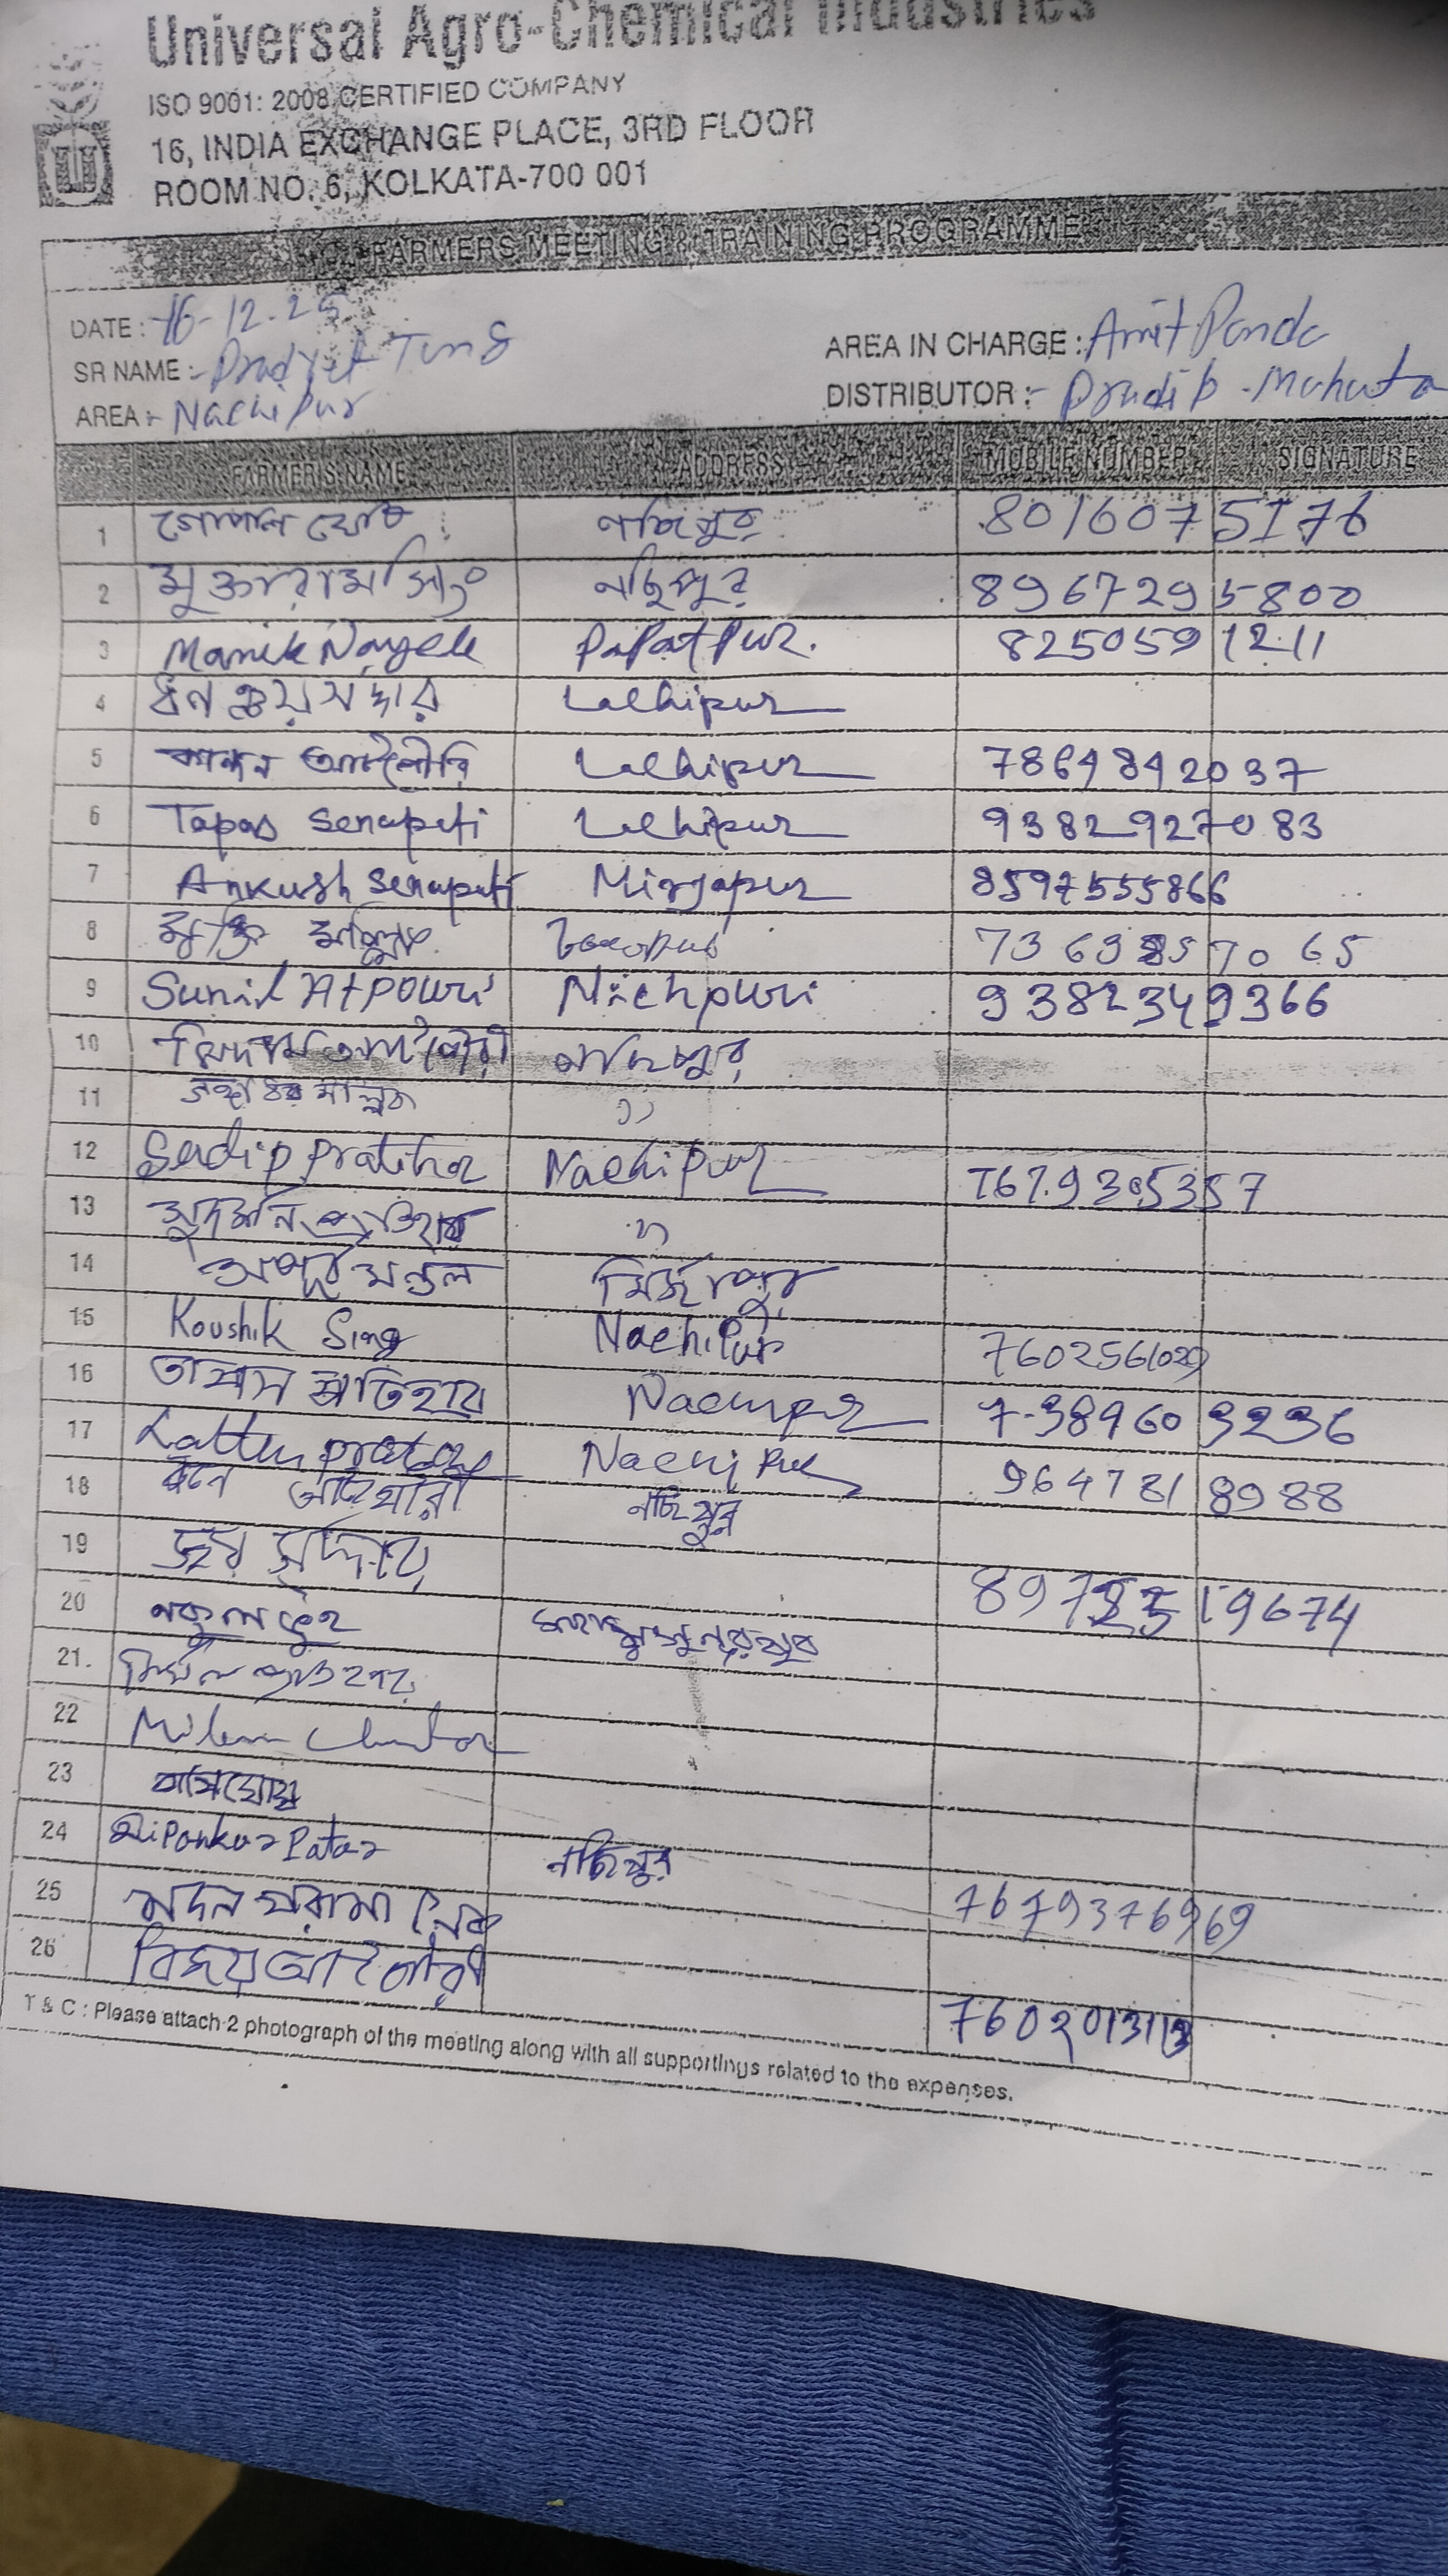 Universal Agro-Chemical Industries
ISO 9001: 2008 CERTIFIED COMPANY
16, INDIA EXCHANGE PLACE, 3RD FLOOR
ROOM NO. 6, KOLKATA-700 001
FARMERS MEETING & TRAINING PROGRAMME
DATE : 16-12-25
SR NAME :- Tung
AREA :- Nachipur
AREA IN CHARGE : Amit Panda
DISTRIBUTOR :- Pradip Mahata
FARMER'S NAME ADDRESS MOBILE NUMBER SIGNATURE
1 গোপাল ঘোষ নছিপুর 8016075176
2 মুক্তারাম সিং নছিপুর 8967295800
3 Manik Nayek PaPatPur. 8250591211
4 ধনঞ্জয় সর্দার Lalhipur
5 আটপৌরি Lalhipur 7864842037
6 Tapas Senapati Lalhipur 9382927083
7 Ankush Senapati Mirzapur 8597555866
8 মুক্তি মল্লিক
9 Sunil Atpouri Nichpuri 9382349366
10 আটপৌরী নাছিপুর
11 মল্লিক ,,
12 Sudip Pratihar Nachipur 7679305357
13 সুদর্শন প্রতিহার ,,
14 অপূর্ব মন্ডল মির্জাপুর
15 Koushik Sing Nachipur 7602561029
16 তাপস প্রতিহার Nachipur 7384603236
17 Lattu pratihar Nachipur 9647818988
18 নছিপুর
19 জয় সর্দার
20 নকুল ভুঁই
21. নির্মল
22 Milan
23
24 Dipankar Patar নছিপুর
25 মদন পরামানিক 7679376969
26 বিজয় আটপৌরী 7602013113
T & C : Please attach 2 photograph of the meeting along with all supportings related to the expenses.